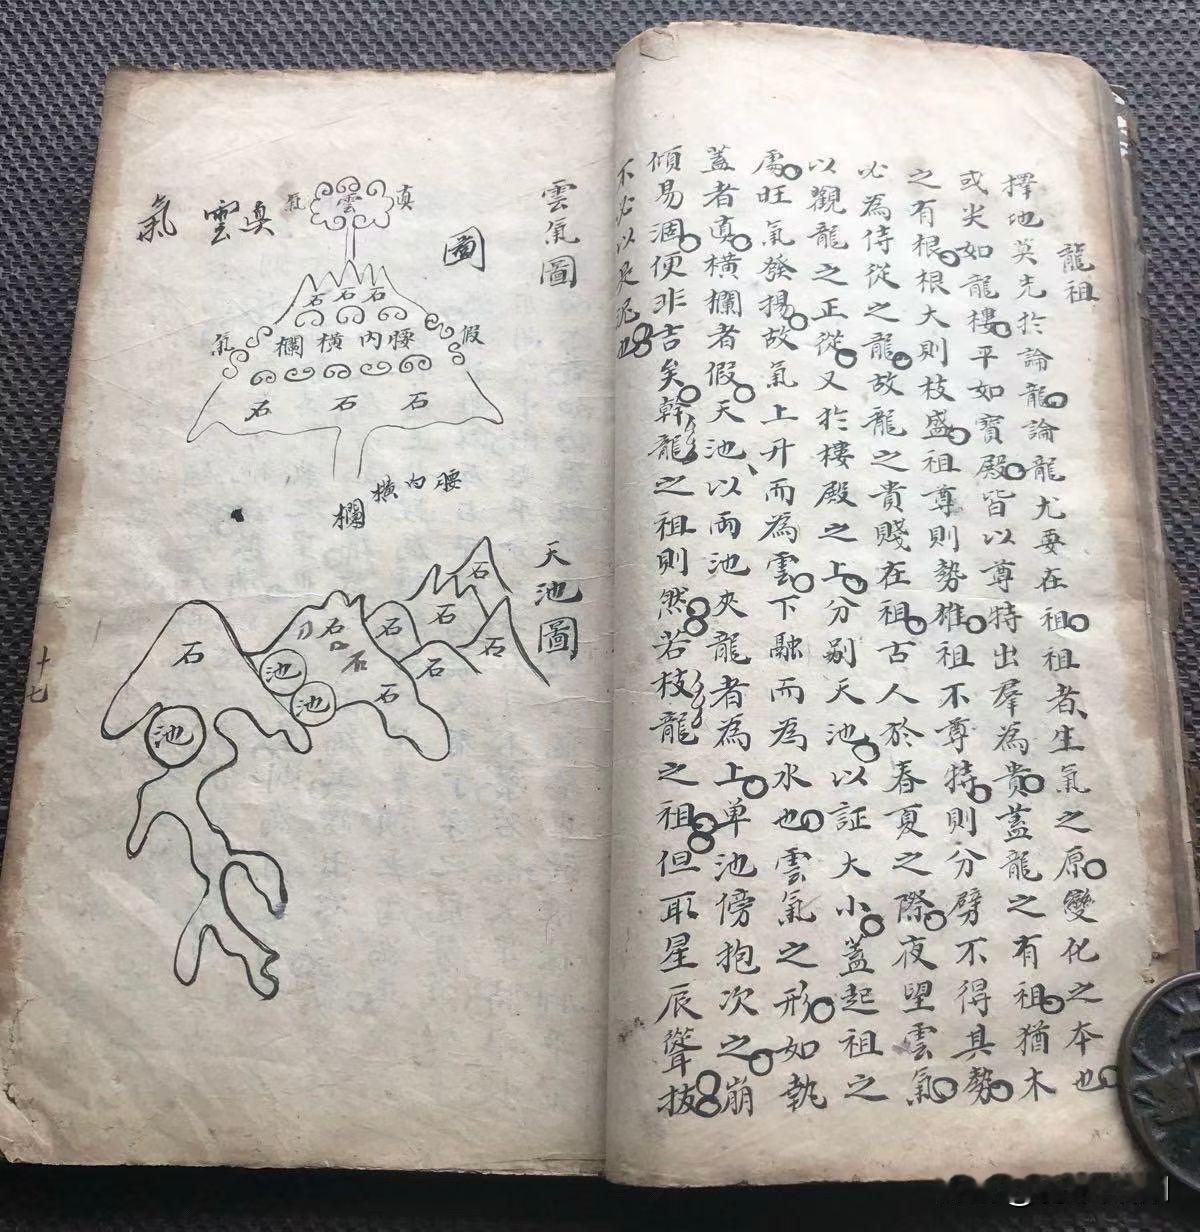 龍祖
擇地莫先於論龍論龍尤要在祖祖者生氣之原變化之本也
或尖如龍樓平如寶殿皆以尊特出羣為貴蓋龍之有祖猶木
之有根根大則枝盛祖尊則勢雄祖不尊特則分劈不得其勢
必為侍從之龍故龍之貴賤在祖古人於春夏之際夜望雲氣
以觀龍之正從又於樓殿之上分别天池以証大小蓋起祖之
處旺氣發揚故氣上升而為雲下融而為水也雲氣之形如執
蓋者真橫欄者假天池、以兩池夾龍者為上单池傍抱次之崩
傾易涸便非吉矣幹龍之祖則然若枝龍之祖但取星辰聳拔
不必以是泥也
雲氣圖
圖
真
雲
氣
真
雲
氣
石石石
假
腰内橫欄
氣
石
石
石
腰内橫欄
天池圖
石
石
石
石
石
石
石
石
石
池
池
池
十七